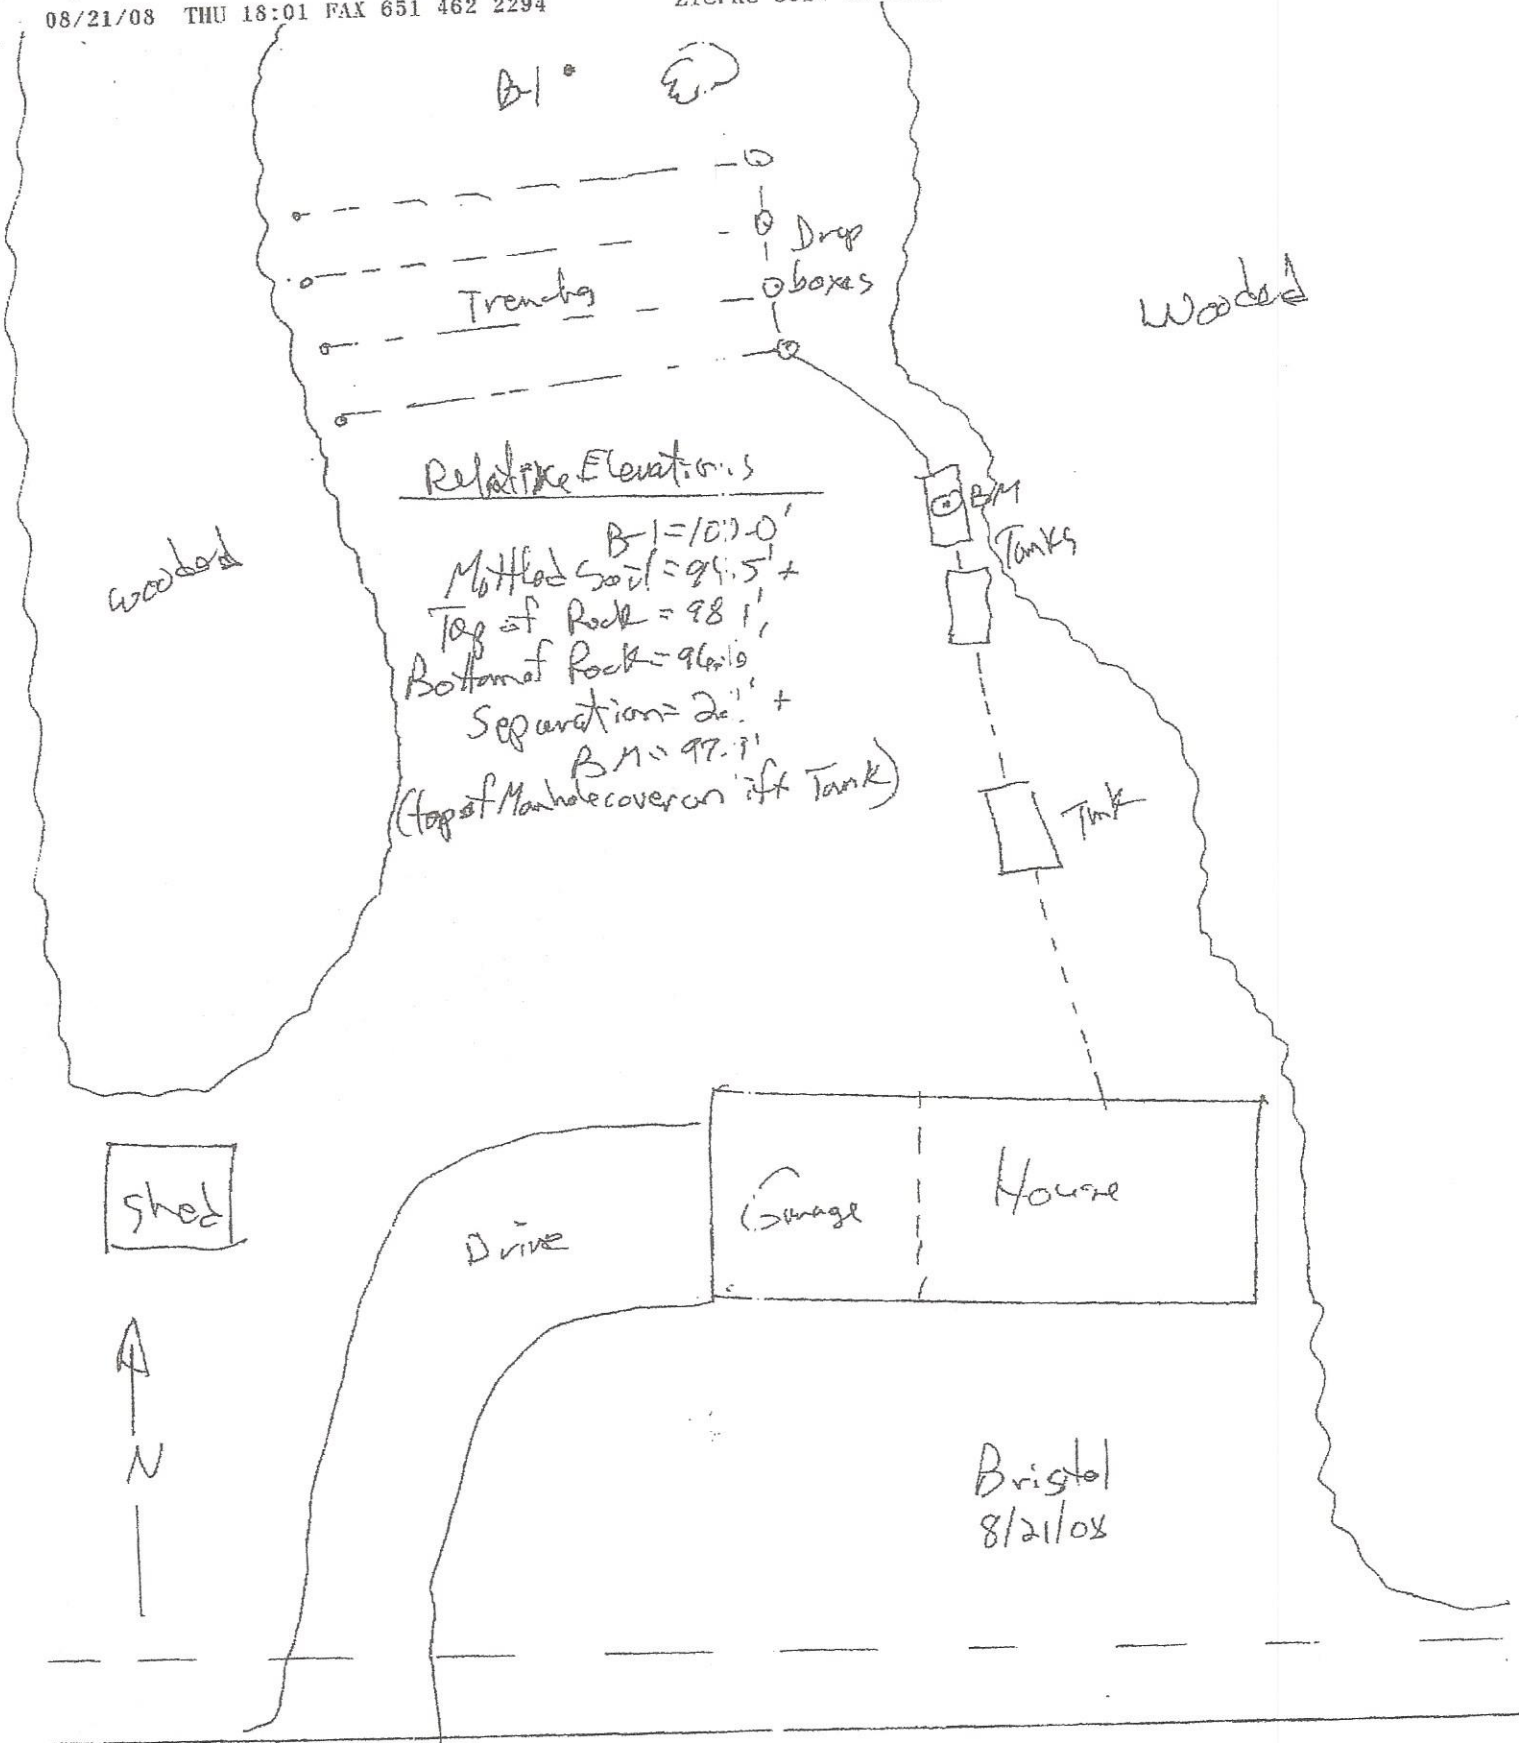 08/21/08 THU 18:01 FAX 651 462 2294
B-1
Drop
boxes
Trenches
Wooded
Relative Elevations
B-1=100.0'
Mottled Soil = 94.5' +
Top of Rock = 98
Bottom of Rock =
Separation = +
BM = 97.
(top of Manhole cover on lift Tank)
BM
Tanks
wooded
Tank
Shed
Drive
Garage
House
N
Bristol
8/21/08